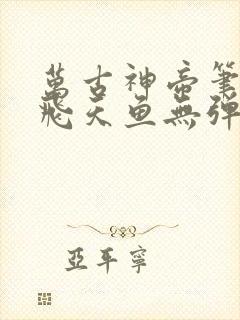 萬古神帝筆
飛天魚無彈
亞平寧